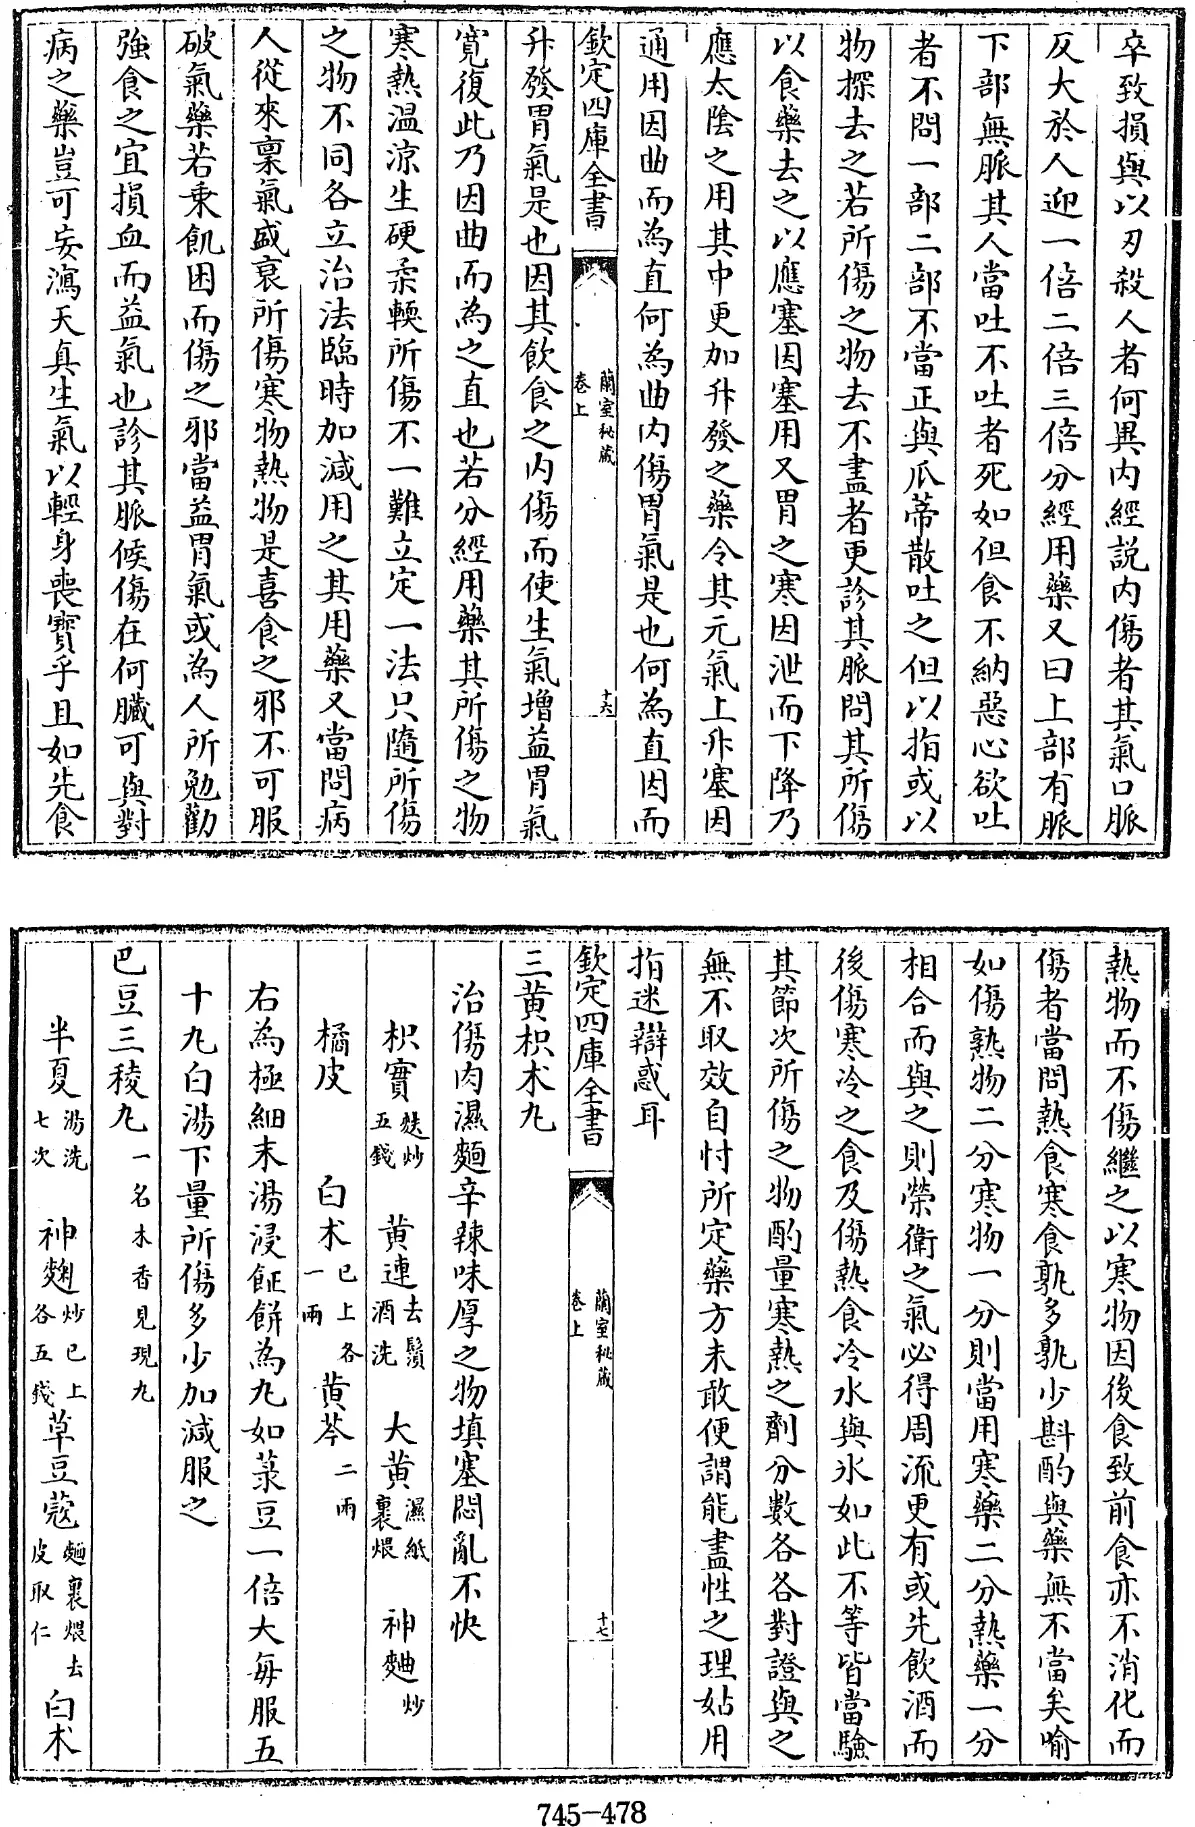 卒致損與以刃殺人者何異内經説内傷者其氣口脈
反大於人迎一倍二倍三倍分經用藥又曰上部有脈
下部無脈其人當吐不吐者死如但食不納惡心欲吐
者不問一部二部不當正與瓜蒂散吐之但以指或以
物探去之若所傷之物去不盡者更診其脈問其所傷
以食藥去之以應塞因塞用又胃之寒因泄而下降乃
應太陰之用其中更加升發之藥令其元氣上升塞因
通用因曲而為直何為曲内傷胃氣是也何為直因而
欽定四庫全書
蘭室秘藏
卷上
十六
升發胃氣是也因其飲食之内傷而使生氣增益胃氣
寛復此乃因曲而為之直也若分經用藥其所傷之物
寒熱温涼生硬柔輭所傷不一難立定一法只隨所傷
之物不同各立治法臨時加減用之其用藥又當問病
人從來稟氣盛衰所傷寒物熱物是喜食之邪不可服
破氣藥若乗飢困而傷之邪當益胃氣或為人所勉勸
強食之宜損血而益氣也診其脈候傷在何臟可與對
病之藥豈可妄瀉天真生氣以輕身喪寳乎且如先食
熱物而不傷繼之以寒物因後食致前食亦不消化而
傷者當問熱食寒食孰多孰少斟酌與藥無不當矣喻
如傷熱物二分寒物一分則當用寒藥二分熱藥一分
相合而與之則榮衛之氣必得周流更有或先飲酒而
後傷寒冷之食及傷熱食冷水與氷如此不等皆當驗
其節次所傷之物酌量寒熱之劑分數各各對證與之
無不取效自忖所定藥方未敢便謂能盡性之理姑用
指迷辯惑耳
欽定四庫全書
蘭室秘藏
卷上
十七
三黄枳术丸
治傷肉濕麵辛辣味厚之物填塞悶亂不快
枳實麩炒五錢 黄連去鬚酒洗 大黄濕紙裹煨 神麯炒
橘皮 白术已上各一兩 黄芩二兩
右為極細末湯浸䭔餅為丸如菉豆一倍大每服五
十丸白湯下量所傷多少加減服之
巴豆三稜丸一名木香見現丸
半夏湯洗七次 神麯炒已上各五錢 草豆蔻麵裹煨去皮取仁 白术
745-478